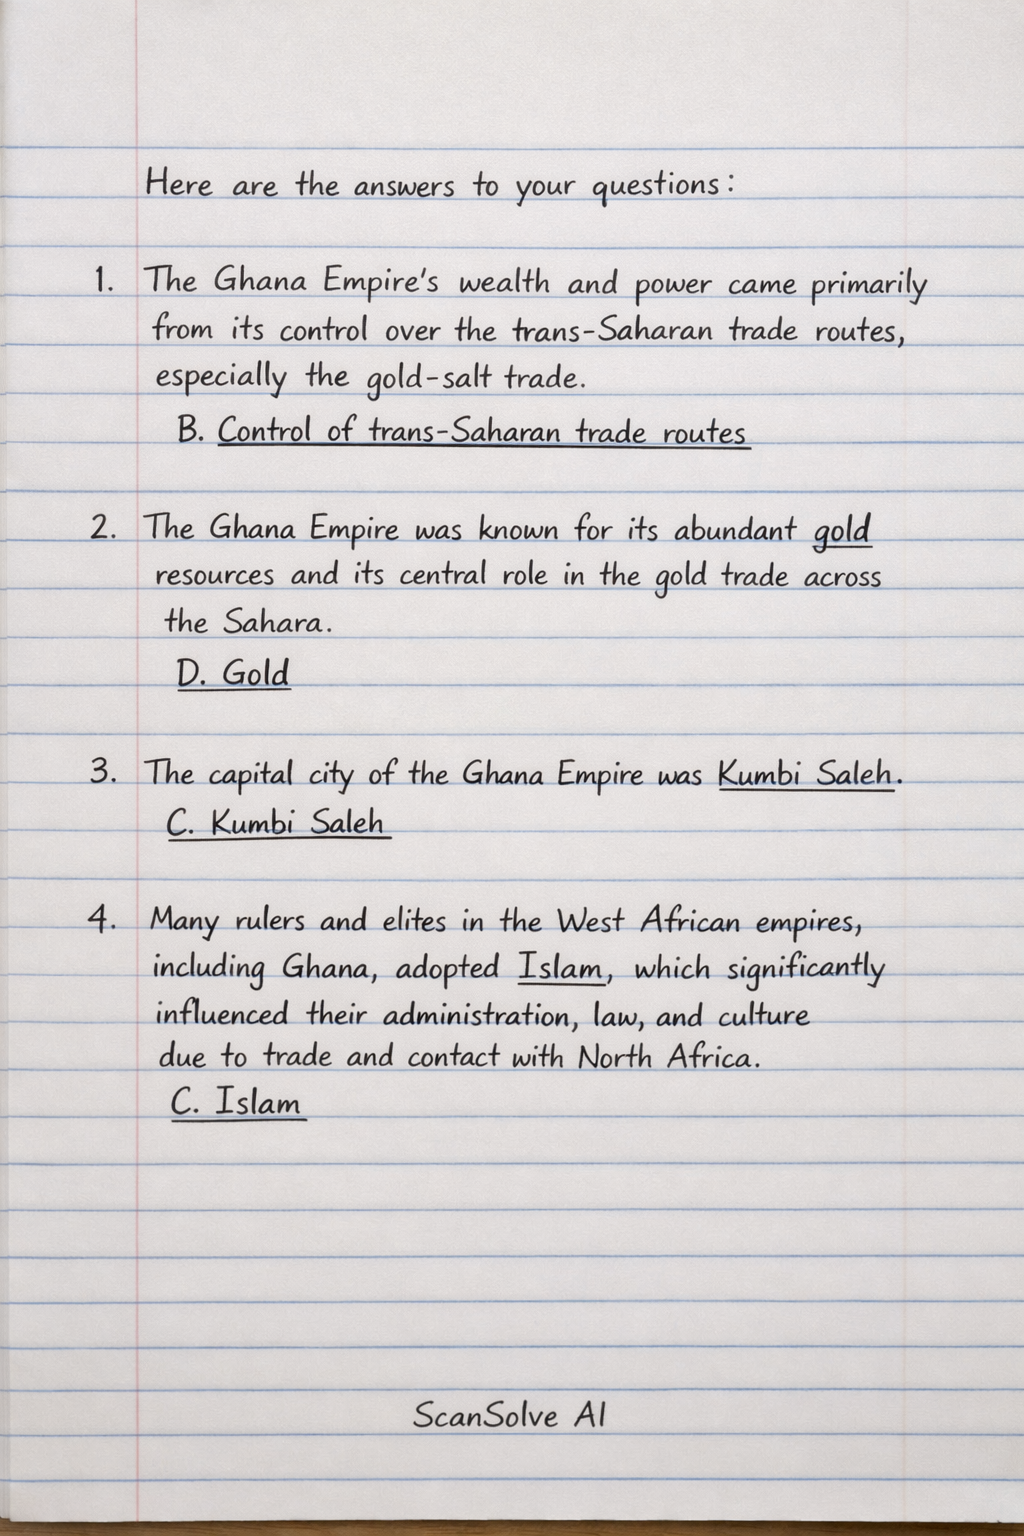 Here are the answers to your questions:
1. The Ghana Empire's wealth and power came primarily
from its control over the trans-Saharan trade routes,
especially the gold-salt trade.
B. Control of trans-Saharan trade routes
2. The Ghana Empire was known for its abundant gold
resources and its central role in the gold trade across
the Sahara.
D. Gold
3. The capital city of the Ghana Empire was Kumbi Saleh.
C. Kumbi Saleh
4. Many rulers and elites in the West African empires,
including Ghana, adopted Islam, which significantly
influenced their administration, law, and culture
due to trade and contact with North Africa.
C. Islam
ScanSolve AI